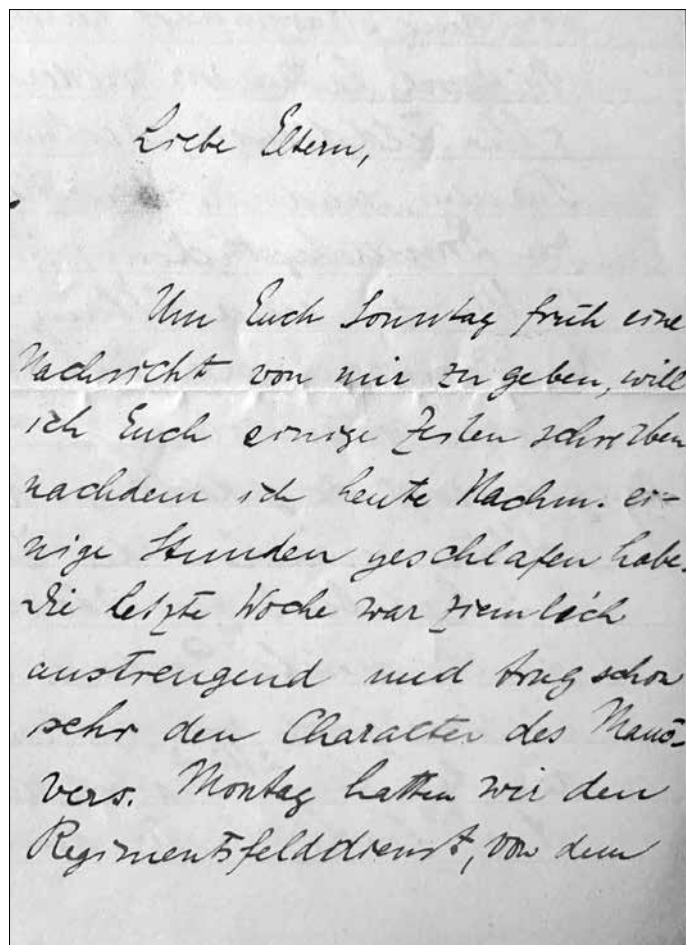 Liebe Eltern,
Um Euch Sonntag früh eine
Nachricht von mir zu geben, will
ich Euch einige Zeilen schreiben
nachdem ich heute Nachm. ei-
nige Stunden geschlafen habe.
Die letzte Woche war ziemlich
anstrengend und trug schon
sehr den Character des Manö-
vers. Montag hatten wir den
Regimentsfelddienst, von dem